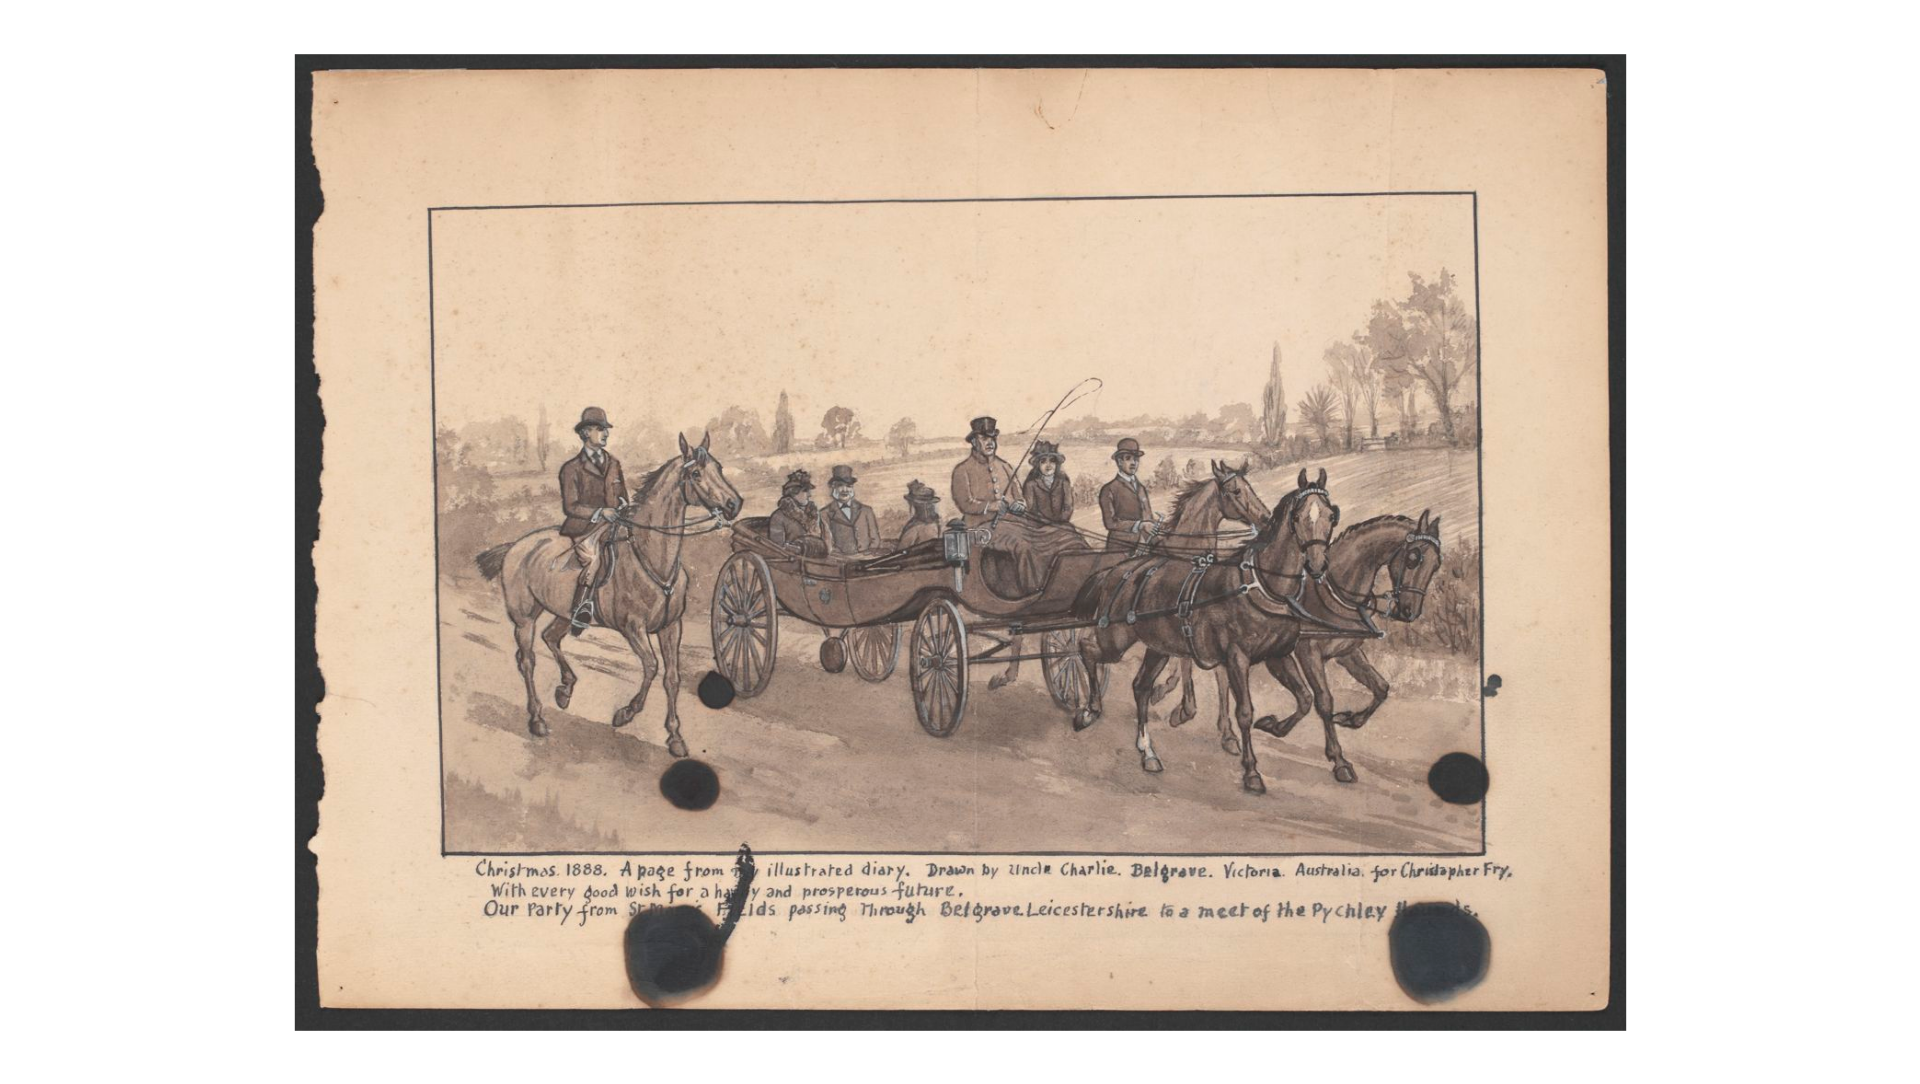 Christmas. 1888. A page from my illustrated diary. Drawn by Uncle Charlie. Belgrave. Victoria. Australia. for Christopher Fry.
With every good wish for a happy and prosperous future.
Our Party from St Fields passing Through Belgrave. Leicestershire to a meet of the Pychley